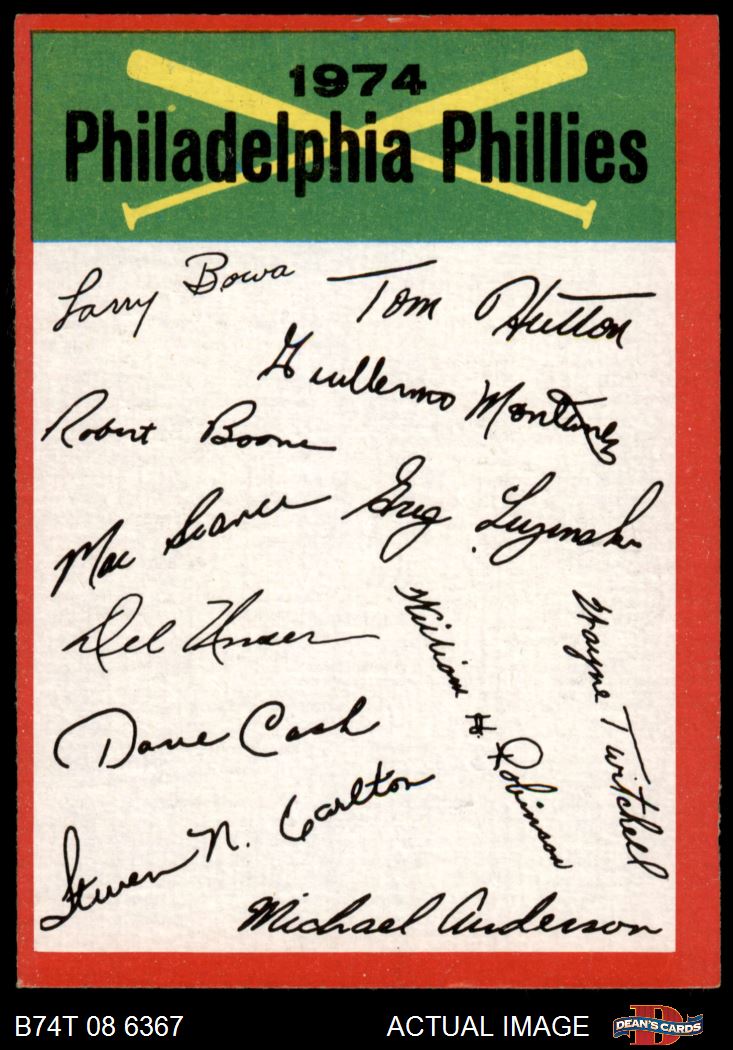 1974
Philadelphia Phillies
Larry Bowa
Tom Hutton
Guillermo Montanez
Robert Boone
Mac Scarce
Greg Luzinski
Del Unser
William H. Robinson
Wayne Twitchell
Dave Cash
Steven N. Carlton
Michael Anderson
B74T 08 6367
ACTUAL IMAGE
DEAN'S CARDS